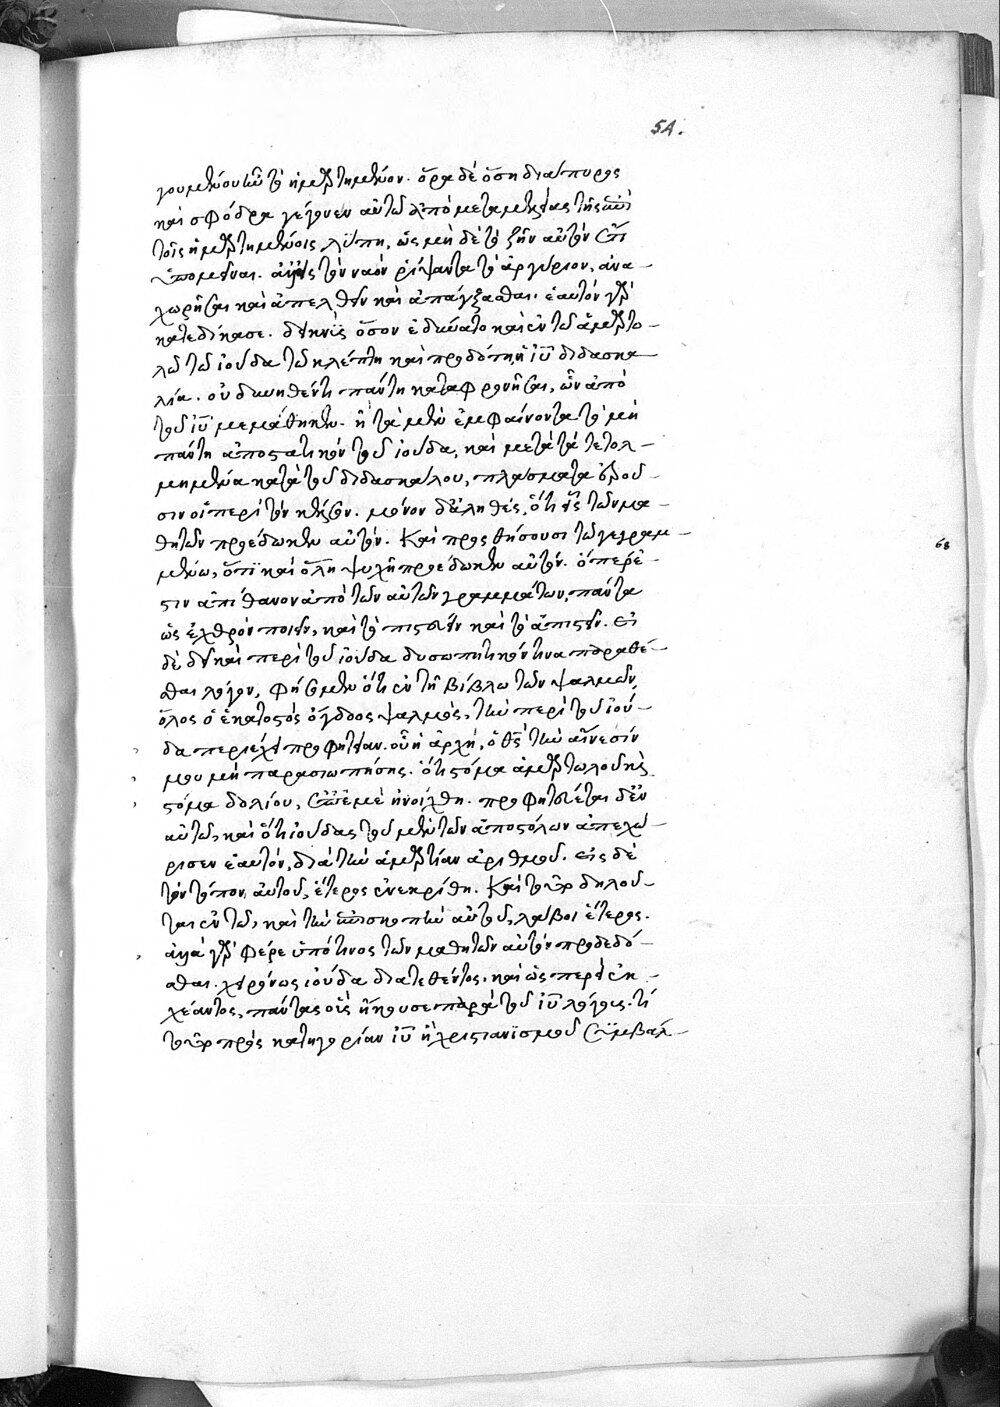 54.
γουμένου καὶ τὸ ἡμαρτημένον. ὅρα δὲ ὅση διάπυρος
καὶ σφόδρα γέγονεν αὐτῷ ἀπὸ μεταμελείας τῆς ἐπὶ
τοῖς ἡμαρτημένοις λύπη, ὡς μὴ δὲ τὸ ζῆν αὐτὸν ἔτι
ὑπομεῖναι. ἀλλ' εἰς τὸν ναὸν ῥίψαντα τὸ ἀργύριον, ἀνα-
χωρῆσαι καὶ ἀπελθεῖν καὶ ἀπάγξασθαι. ἑαυτὸν γὰρ
κατεδίκασε. δείκνυς ὅσον ἐδύνατο καὶ ἐν τῷ ἁμαρτω-
λῷ τῷ ἰούδα τῷ κλέπτῃ καὶ προδότῃ, ἡ ἰῦ διδασκα-
λία. οὐ δυνηθέντι πάντῃ καταφρονῆσαι, ὧν ἀπὸ
τοῦ ἰῦ μεμάθηκεν. ἢ τὰ μὲν ἐμφαίνοντα τὸ μὴ
πάντη ἀποστατικὸν τοῦ ἰούδα, καὶ μετὰ τὰ τετολ-
μημένα κατὰ τοῦ διδασκάλου, πλάσματα ἐροῦ-
σιν οἱ περὶ τὸν κέλσον. μόνον δ' ἀληθές, ὅτι εἷς τῶν μα-
θητῶν προέδωκεν αὐτόν. Καὶ προσθήσουσι τῷ γεγραμ-
μένῳ, ὅτι καὶ ὅλῃ ψυχῇ προέδωκεν αὐτόν. ὅπερ ἐ-
στιν ἀπίθανον ἀπὸ τῶν αὐτῶν γραμμάτων, πάντα
ὡς ἐχθρὸν ποιεῖν, καὶ τὸ πιστεύειν καὶ τὸ ἀπιστεῖν. εἰ
δὲ δεῖ καὶ περὶ τοῦ ἰούδα δυσωπητικόν τινα παραθέ-
σθαι λόγον, φήσομεν ὅτι ἐν τῇ βίβλῳ τῶν ψαλμῶν,
ὅλος ὁ ἑκατοστὸς ὄγδοος ψαλμός, τὴν περὶ τοῦ ἰού-
δα περιέχει προφητείαν. οὗ ἡ ἀρχή, ὁ θς τὴν αἴνεσίν
μου μὴ παρασιωπήσῃς. ὅτι στόμα ἁμαρτωλοῦ κὶ
στόμα δολίου, ἐπ' ἐμὲ ἠνοίχθη. προφητεύεται δ' ἐν
αὐτῷ, καὶ ὅτι ἰούδας τοῦ μὲν τῶν ἀποστόλων ἀπεχώ-
ρισεν ἑαυτόν, διὰ τὴν ἁμαρτίαν ἀριθμοῦ. εἰς δὲ
τὸν τόπον αὐτοῦ, ἕτερος ἐνεκρίθη. Καὶ τοῦτο δηλοῦ-
ται ἐν τῷ, καὶ τὴν ἐπισκοπὴν αὐτοῦ, λάβοι ἕτερος.
ἀλλὰ γὰρ φέρε ὑπό τινος τῶν μαθητῶν αὐτὸν προδεδό-
σθαι. χειρόνως ἰούδα διατεθέντος, καὶ ὡς περεὶ ἐκ-
χέαντος, πάντας οὓς ἤκουσε παρὰ τοῦ ἰῦ λόγους. τί
τοῦτο πρὸς κατηγορίαν ἰῦ ἢ χριστιανϊσμοῦ συμβάλ-
68